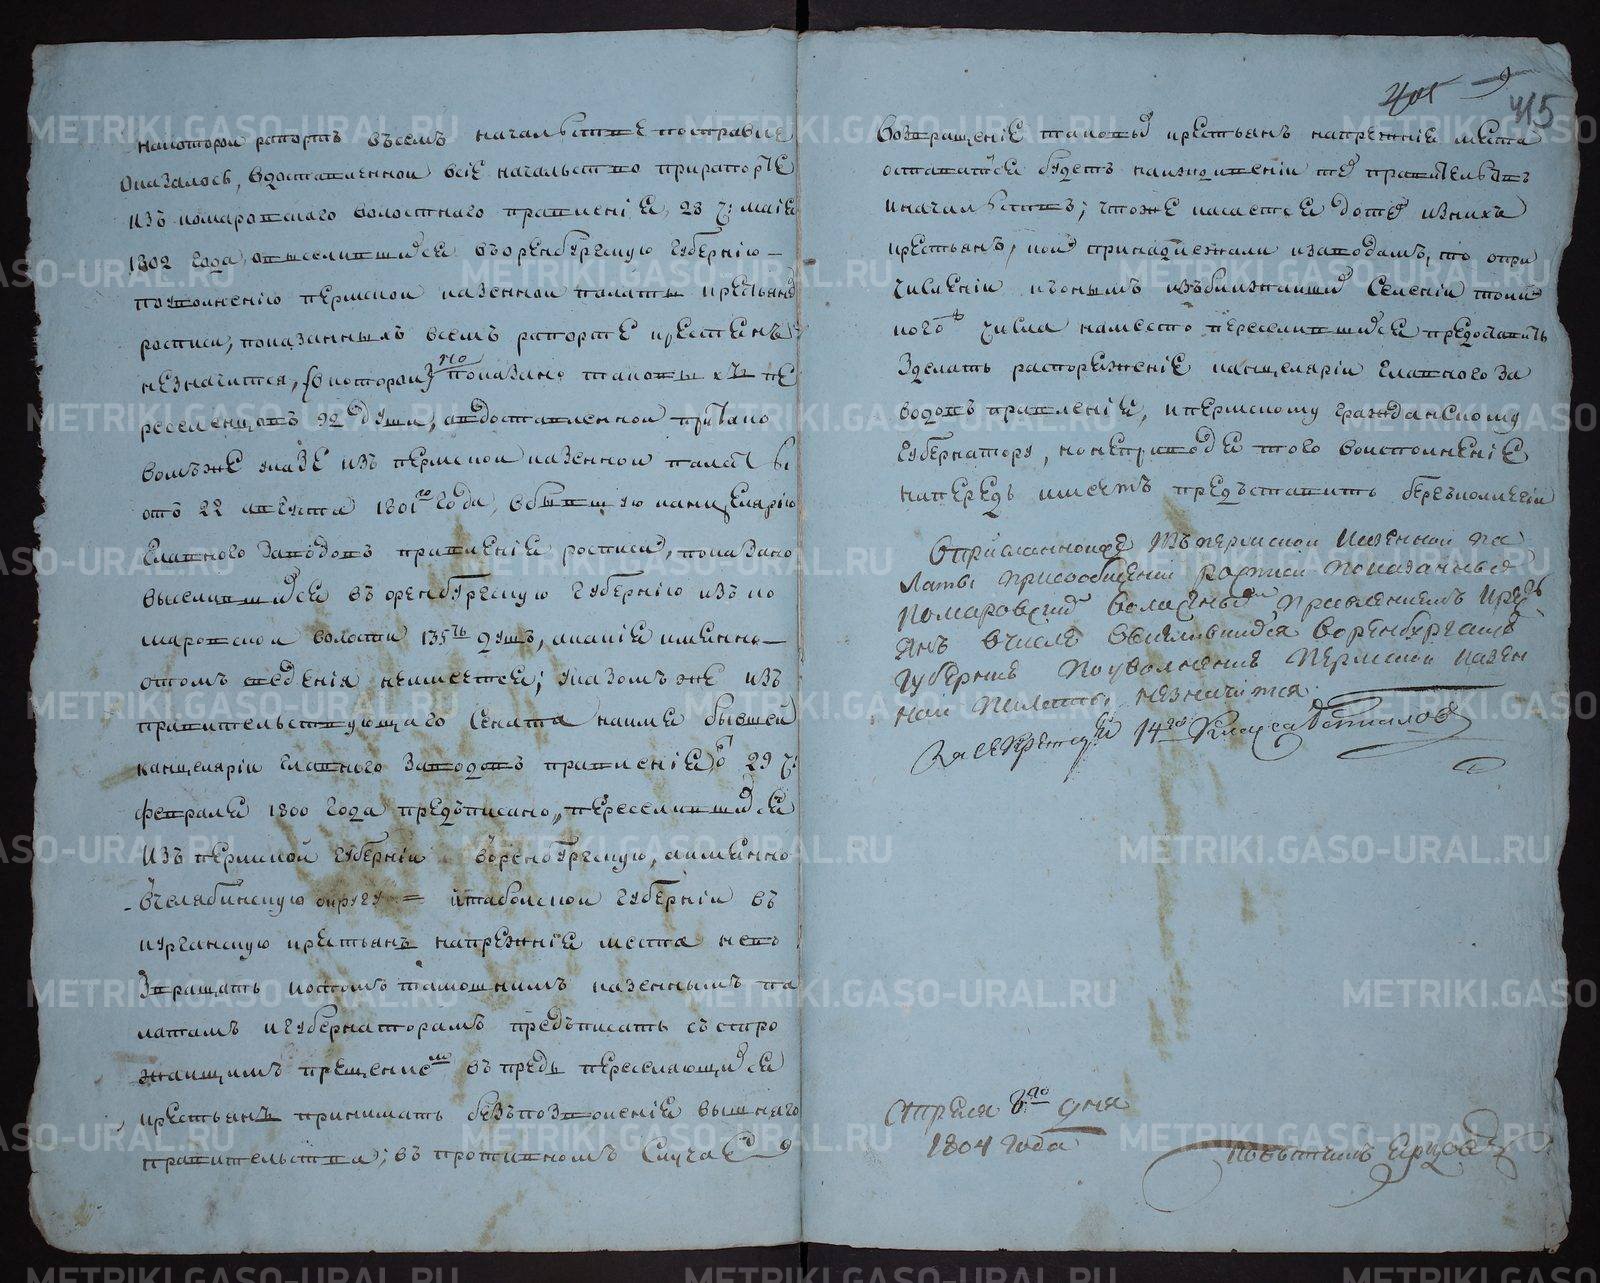 накотором рапортъ въсемъ начальстве посправке
оказалось, вдоставленной всiе начальство прирапорте
изъ комаровского волостного правленiя, 28 ч: маiя
1802 года, овыселившихся въоренбургскую губернiю
поуволненiю пермской казенной палаты крестьянъ
росписи, показанныхъ всемъ рапорте крестьянъ
незначится, в которой показано таковы хъ пе
реселенцовъ 92 души, авдоставленной при тако
вомъже указе изъ пермской казенной палаты
отъ 22 августа 1801го года, вбывшую канцелярiю
главного заводовъ правленiя росписи, показано
выселившихся въ оренбургскую губернiю изъ ко
маровской волости 135ть душъ, акакiе имянно
отомъ сведенiя неимеется; указомъ же изъ
правительствующаго Сената наимя бывшей
канцелярiи главного заводовъ правленiя отъ 29 ч:
февраля 1800 года предъписано, переселившихся
изъ пермской губернiи въоренбургскую, аимянно
въчелябинскую округу = итабольской губернiи въ
курганскую крестьянъ напрежнiя места невъ
звращать ипотомъ тамошнимъ казеннымъ па
латамъ игубернаторамъ предъписать съ стро
жайшимъ прещенiемъ въ предь переселяющихся
крестьянъ принимать безъпозволенiя вышняго
правительства; въ противномъ Случае
METRIKI.GASO-URAL.RU
405 9
415
возвращенiе таковыхъ крестьянъ напрежнiе места
останется будетъ наиждивенiи техъ правительствъ
иначальствъ; чтоже касается дотехъ изнихъ
крестьянъ, кои принадлежали изаводамъ, то опри
численiи къонымъ изъближайшихъ Селенiи толи
кого числа навместо переселившихся предоставить
Зделать распоряженiе канцелярiи главного за
водовъ правленiя, ипермскому гражданскому
губернатору, нонеприводя того воисполненiе
напередъ имеетъ предъставить бергъколлегiи
Вприсланной изъ пермской Казенной па
латы присообщенiи Росписи показанныхъ
комаровскимъ волостнымъ правленiемъ кресть
янъ вчисле выселившихся воренбургскую
губернию поуволнению пермской казен
ной палаты незначится
За секретаря 14го Класса
Апреля 8го дня
1804 года
Повытчикъ